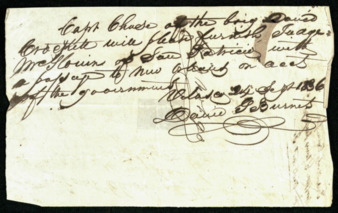 Capt Chase of the brig David
Crockett will please furnish Judge
McKlowins of San Patricio with
a passage to New Orleans on acct
of the government
Velasco 24 Sept 1836
David G Burnet